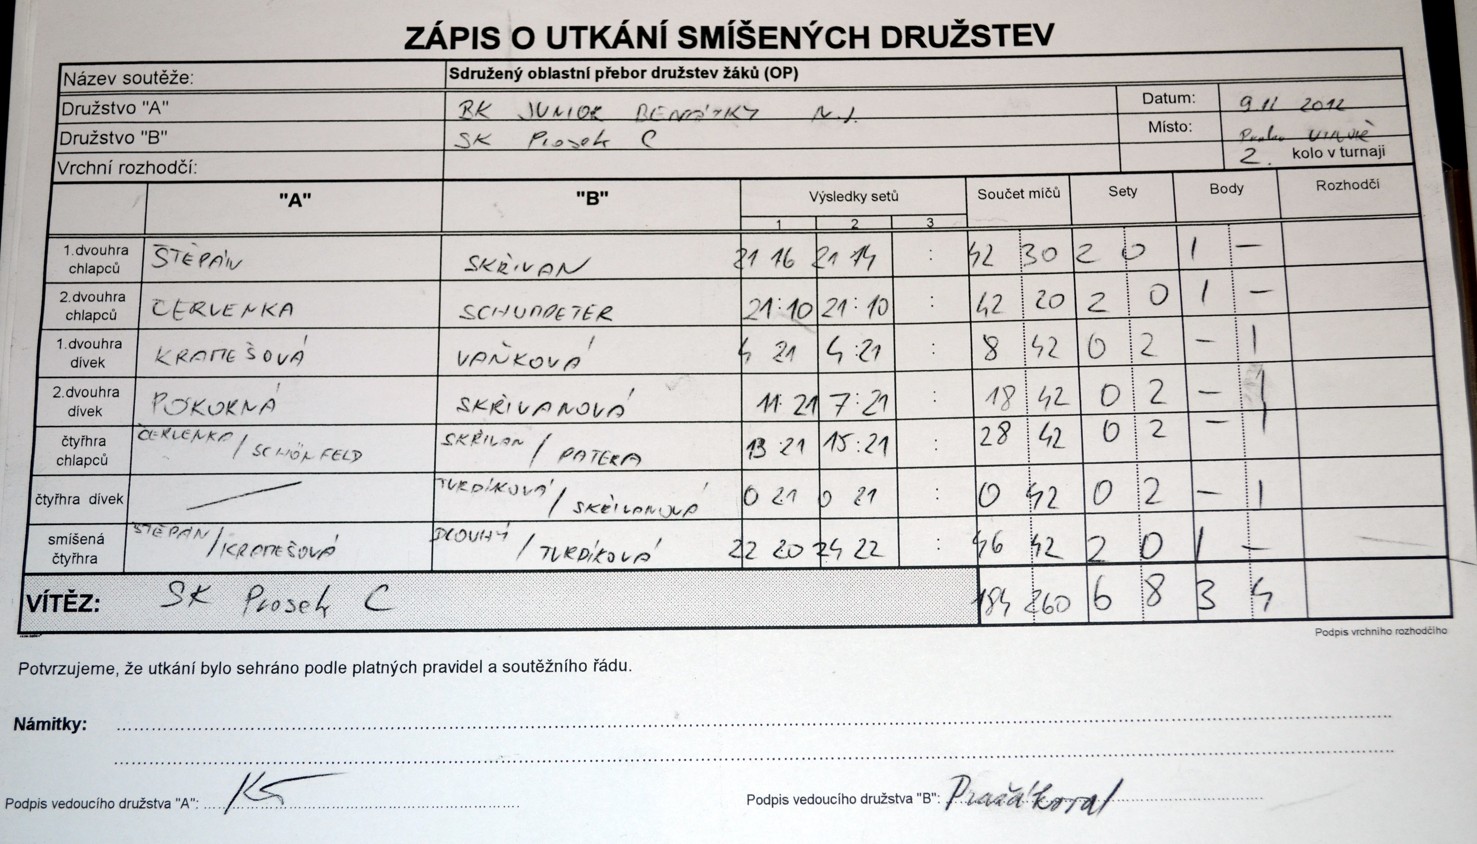 ZÁPIS O UTKÁNÍ SMÍŠENÝCH DRUŽSTEV
Název soutěže: Sdružený oblastní přebor družstev žáků (OP)
Družstvo "A" BK JUNIOR BENÁTKY N.J. Datum: 9 11 2012
Družstvo "B" SK Prosek C Místo:
Vrchní rozhodčí: 2. kolo v turnaji
"A" "B" Výsledky setů Součet míčů Sety Body Rozhodčí
1 2 3
1.dvouhra chlapců ŠTĚPÁN SKŘIVAN 21 16 21 14 : 42 30 2 0 1 –
2.dvouhra chlapců ČERVENKA SCHUMPETER 21:10 21:10 : 42 20 2 0 1 –
1.dvouhra dívek KRAMEŠOVÁ VAŇKOVÁ 4 21 4:21 : 8 42 0 2 – 1
2.dvouhra dívek POKORNÁ SKŘIVANOVÁ 11:21 7:21 : 18 42 0 2 – 1
čtyřhra chlapců ČERVENKA / SCHÖNFELD SKŘIVAN / PATERA 13 21 15:21 : 28 42 0 2 – 1
čtyřhra dívek — TVRDÍKOVÁ / SKŘIVANOVÁ 0 21 0 21 : 0 42 0 2 – 1
smíšená čtyřhra ŠTĚPÁN / KRAMEŠOVÁ DLOUHÝ / TVRDÍKOVÁ 22 20 24 22 : 46 42 2 0 1 –
VÍTĚZ: SK Prosek C 184 260 6 8 3 4
Podpis vrchního rozhodčího
Potvrzujeme, že utkání bylo sehráno podle platných pravidel a soutěžního řádu.
Námitky:
Podpis vedoucího družstva "A": Podpis vedoucího družstva "B":